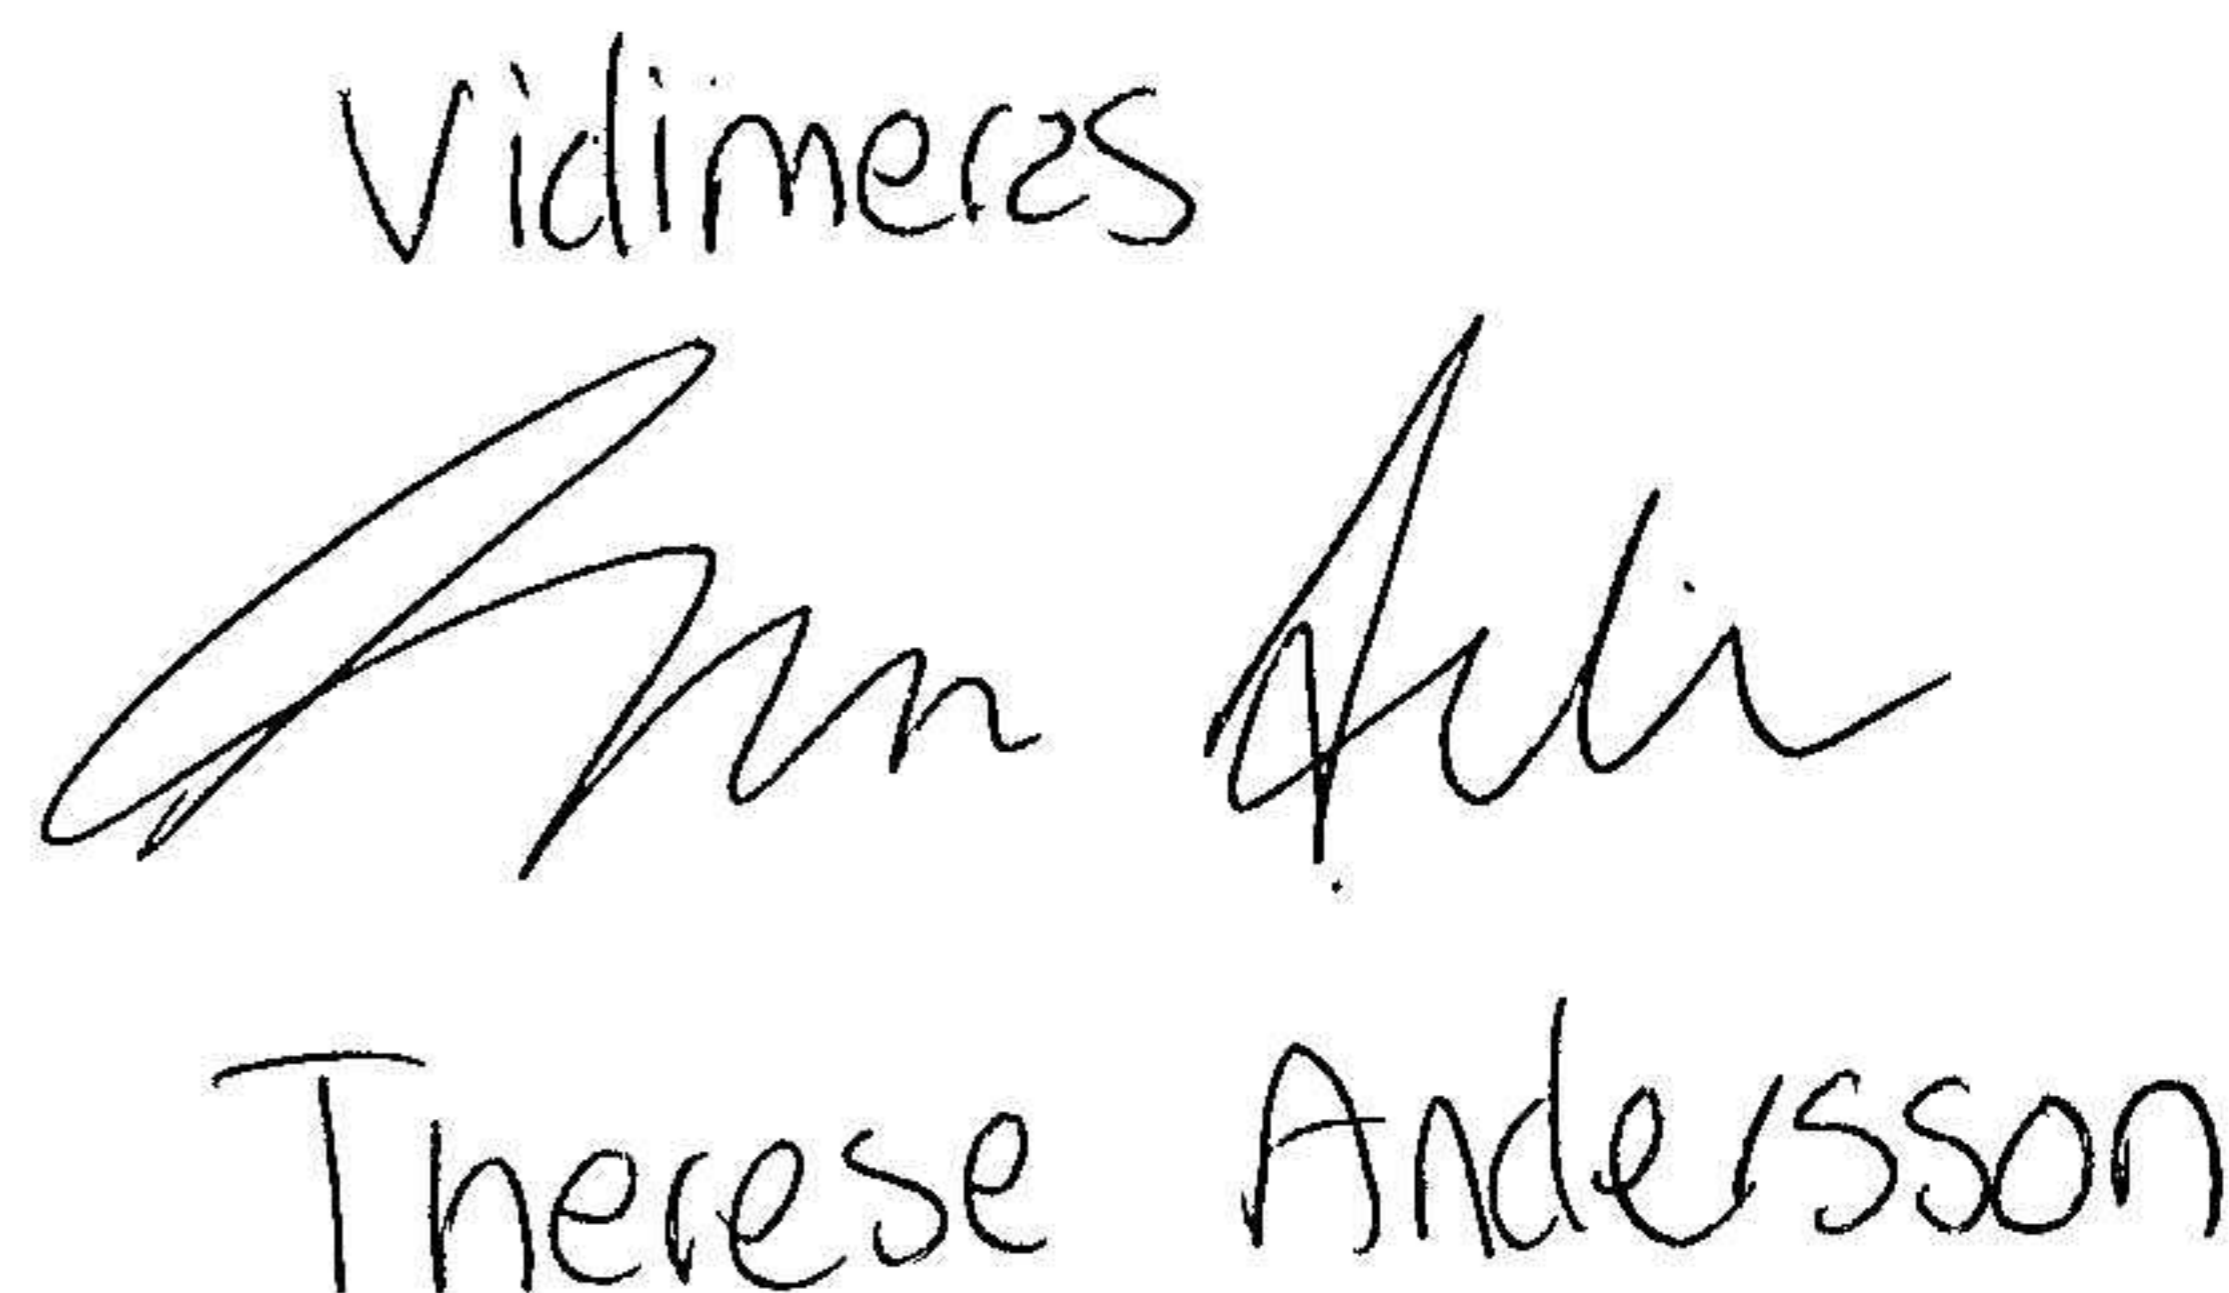 Vidimeras
Therese Andersson